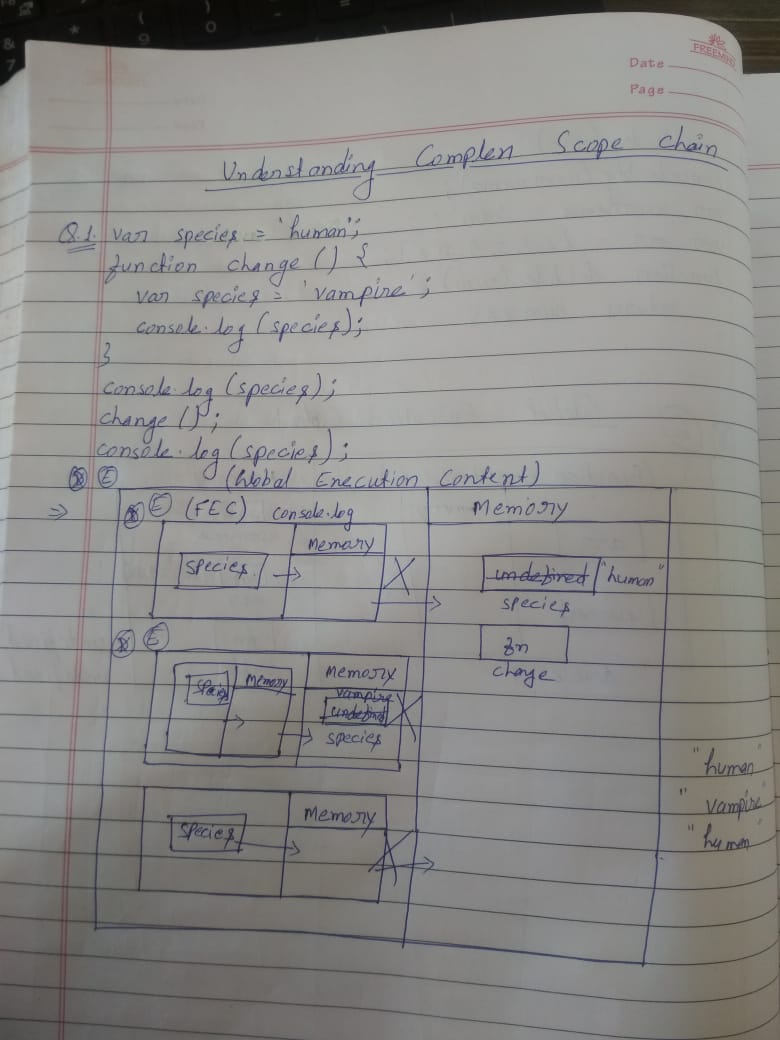 FREEMIND
Date
Page
Understanding Complen Scope Chain
Q.1. var species = 'human';
function change () {
var species = 'vampire';
console.log (species);
}
console.log (species);
change ();
console.log (species);
E (Global Execution Content)
⇒ E (FEC) console.log
Memory
Memory
species
undefined "human"
species
E
fn
change
Memory
Memory
vampire
undefined
species
"human"
"vampire"
"human"
Memory
species